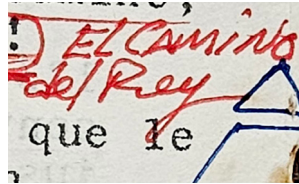 EL CAMINO
del Rey
que le